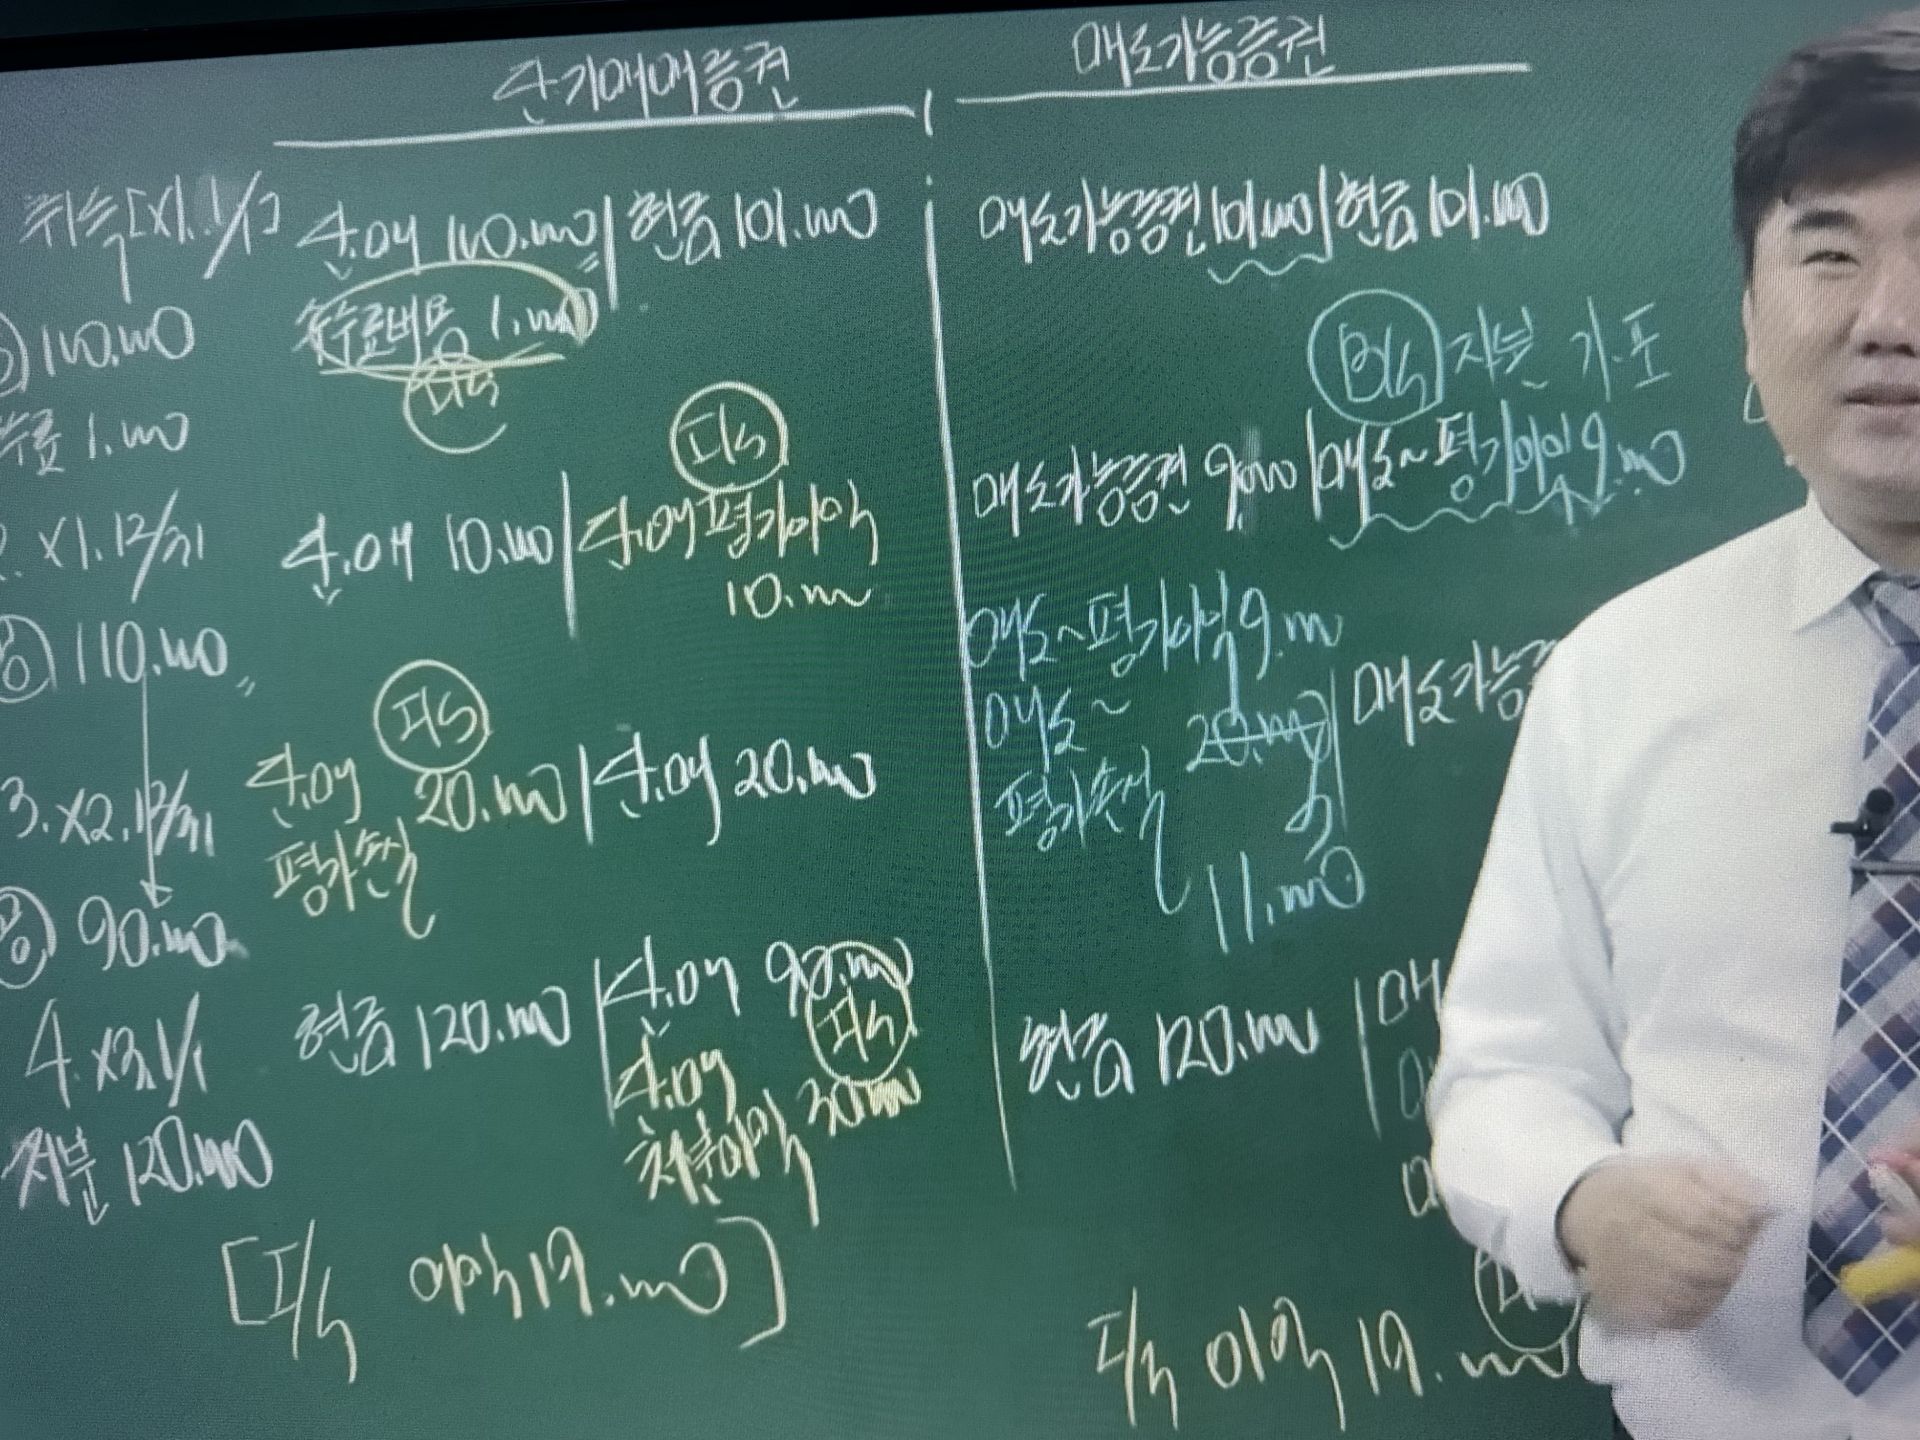 단기매매증권
매도가능증권
취득[X1.1/1]
단.매 100.000 | 현금 101.000
매도가능증권 101.000 | 현금 101.000
100.000
수수료비용 1.000
I/S
B/S 자본 기.포
수료 1.000
I/S
매도가능증권 9.000 | 매도~평가이익 9.000
2. X1.12/31
단.매 10.000 | 단.매평가이익
10.000
공 110.000
매도~평가이익 9.000
매도~
평가손실
20.000 | 매도가능
11.000
I/S
3. X2.12/31
단.매
평가손실
20.000 | 단.매 20.000
공 90.000
4. X3.1/1
처분 120.000
현금 120.000 | 단.매 90.000
I/S
단.매
처분이익 30.000
현금 120.000 | 매
[I/S 이익 19.000]
I/S 이익 19.000